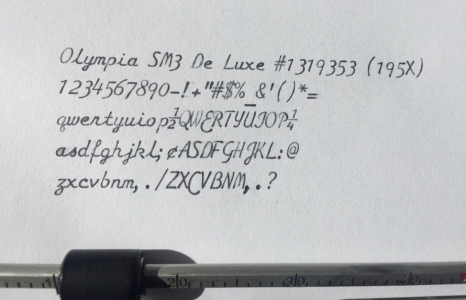 Olympia SM3 De Luxe #1319353 (195X)
1234567890-!+"#$% &'()*=
qwertyuiop½QWERTYUIOP¼
asdfghjkl;¢ASDFGHJKL:@
zxcvbnm,./ZXCVBNM,.?
1 20 30 40